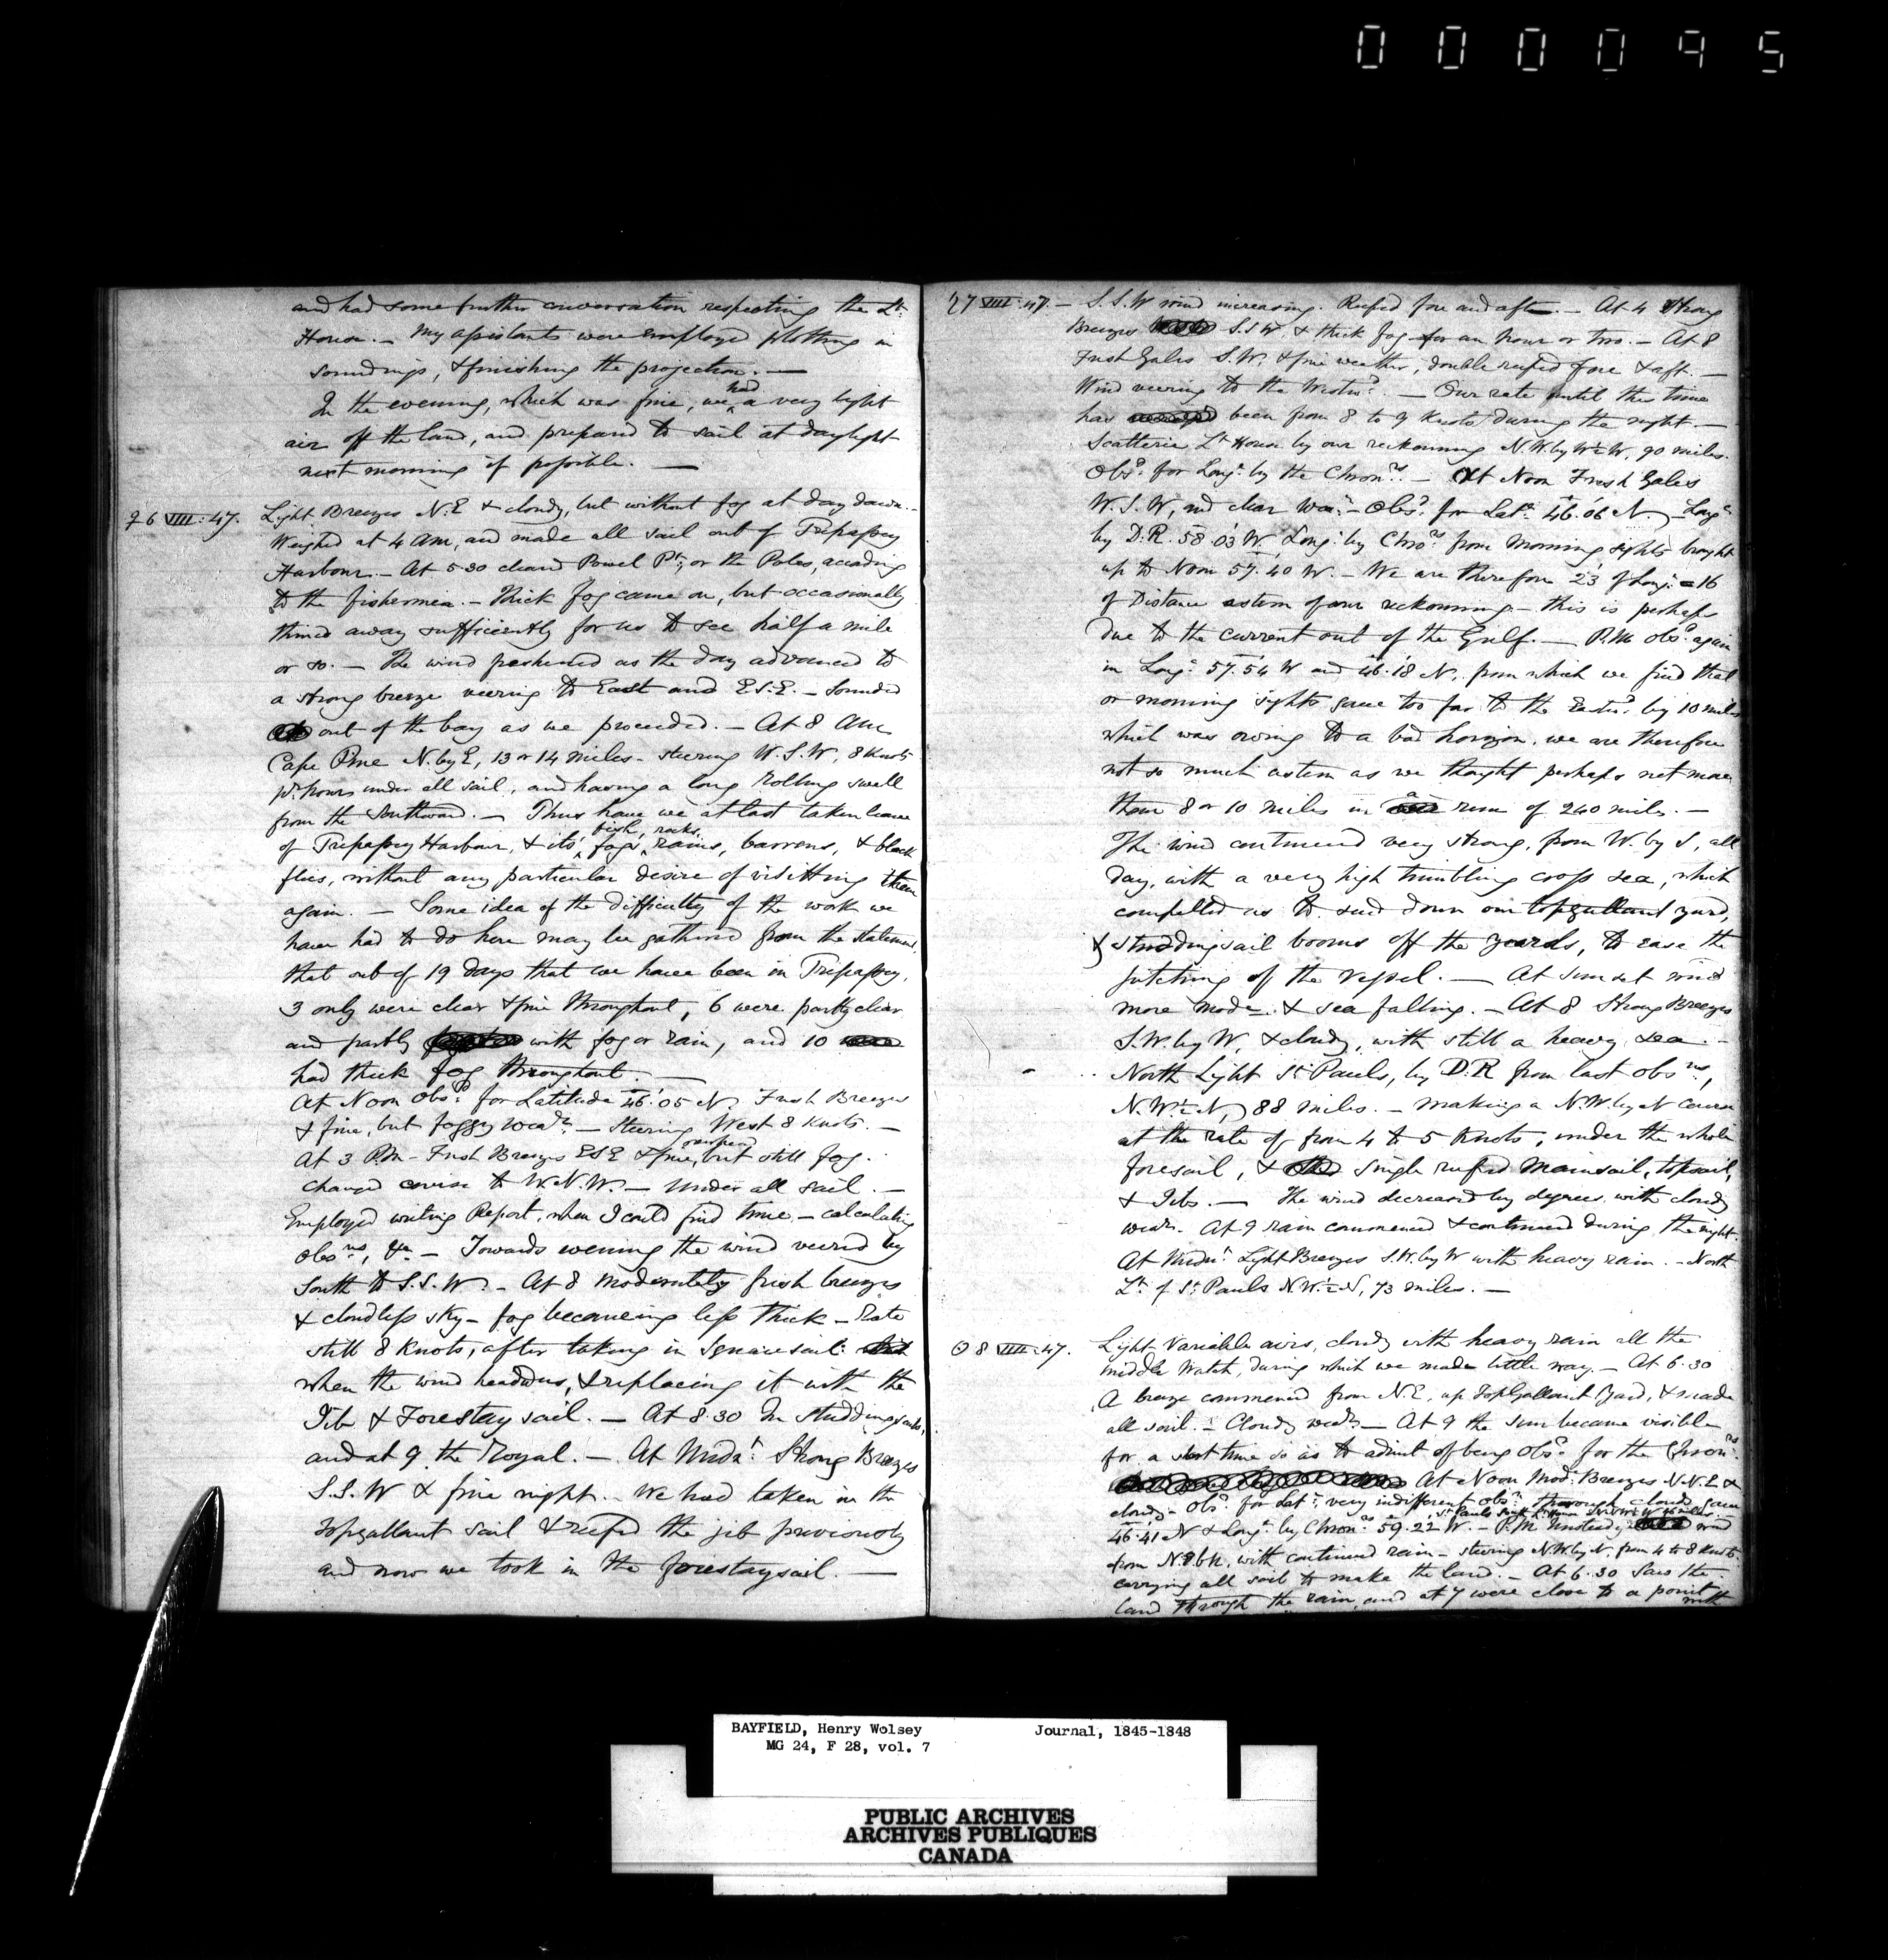 000095
and had some further conversation respecting the Lt.
House. — My assistants were employed plotting in
soundings, & finishing the projection. —
In the evening, which was fine, we had a very light
air off the land, and prepared to sail at daylight
next morning if possible. —
♀ 6 VIII: 47. Light Breezes N.E & cloudy, but without fog at day dawn. -
Weighed at 4 AM, and made all sail out of Trepassey
Harbour. — At 5.30 cleared Powel Pt, or the Poles, according
to the fishermen. — Thick fog came on, but occasionally
thinned away sufficiently for us to see half a mile
or so. — The wind freshened as the day advanced to
a strong breeze veering to East and E.S.E. — Sounded
out of the bay as we proceeded. — At 8 AM
Cape Pine N. by E, 13 or 14 miles - steering W.S.W, 8 Knots
pr. hour under all sail, and having a long rolling swell
from the Southward. — Thus have we at last taken leave
of Trepassey Harbour, & its fish, fogs, rocks, rains, barrens, & black
flies, without any particular desire of visitting them
again. — Some idea of the difficulty of the work we
have had to do here may be gathered from the statement,
that out of 19 days that we have been in Trepassey,
3 only were clear & fine throughout, 6 were partly clear
and partly with fog or rain, and 10
had thick fog throughout. —
At Noon Obsd. for Latitude 46.05 N. Fresh Breezes
& fine, but foggy wear. — Steering West 8 Knots. —
At 3 P.M - Fresh Breezes ESE & fine overhead, but still fog.
Changed course to W.N.W. — Under all sail. —
Employed writing Report, when I could find time — calculating
Obsns, &c — Towards evening the wind veered by
South to S.S.W. - At 8 moderately fresh breezes
& cloudless sky — fog becomeing less thick — Rate
still 8 Knots, after taking in Squaresail
when the wind headed us, & replacing it with the
Jib & Forestaysail. — At 8.30 In Studdingsails,
and at 9 the Royal. — At Midnt. Strong Breezes
S.S.W & fine night. — We had taken in the
topgallant sail & reefed the jib previously
and now we took in the forestaysail. —
♄ 7 VIII: 47. — S.S.W wind increasing. Reefed fore and aft. — At 4 Strong
Breezes S.S.W. & thick fog for an hour or two. — At 8
Fresh Gales S.W. & fine weather, double reefed fore & aft. —
Wind veering to the Westwd. — Our rate until this time
has been from 8 to 9 Knots during the night. —
Scatterie Lt House by our reckonning N.W. by W½W, 90 miles.
Obsd. for Longe. by the Chronrs. — At Noon Fresh Gales
W.S.W, and clear wear. - Obsd. for Late. 46.06 N. — Longe
by D.R. 58.03 W, Longe. by Chrors from morning sights brought
up to Noon 57.40 W. — We are therefore 23' of Longe. = 16
of Distance astern of our reckonning — this is perhaps
due to the current out of the Gulf. — P.M. obsd again
in Longe. 57.54 W and 46.18 N. from which we find that
or morning sights gave too far to the Eastwd. by 10 miles
which was owing to a bad horizon. we are therefore
not so much astern as we thought perhaps not more
than 8 or 10 miles in a run of 240 miles. —
The wind continued very strong, from W. by S, all
day, with a very high trimbling cross sea, which
compelled us to send down our topgallant yard,
& studdingsail booms off the yards, to ease the
pitching of the vessel. — At sunset wind
more mode. & sea falling. — At 8 Strong Breezes
S.W. by W, & cloudy, with still a heavy sea. —
North Light St Pauls, by D.R from last obsns,
N.W.½N, 88 miles. — making a N.W. by N course
at the rate of from 4 to 5 Knots, under the whole
foresail, & single reefed mainsail, topsail,
& Jibs. — The wind decreased by degrees with cloudy
wear. At 9 rain commenced & continued during the night.
At Midnt. Light Breezes S.W. by W with heavy rain. — North
Lt. of St Pauls N.W.½N, 73 miles. —
☉ 8 VIII: 47. Light Variable airs, cloudy with heavy rain all the
middle Watch, during which we made little way. — At 6.30
A breeze commenced from N.E, up TopGallant Yard, & made
all sail. — Cloudy wear — At 9 the sun became visible
for a short time so as to admit of being Obsd. for the Chronrs.
At Noon Mode. Breezes N.N.E &
cloudy - Obsd. for Late. very indifferent obsn. through clouds gave
46.41 N & Longe. by Chronrs 59.22 W. — P.M. Unsteady wind
from N.E bN. with continued rain — steering N.W. by N. from 4 to 8 Knots.
carrying all sail to make the land. — At 6.30 Saw the
land through the rain, and at 7 were close to a point
with
BAYFIELD, Henry Wolsey Journal, 1845-1848
MG 24, F 28, vol. 7
PUBLIC ARCHIVES
ARCHIVES PUBLIQUES
CANADA